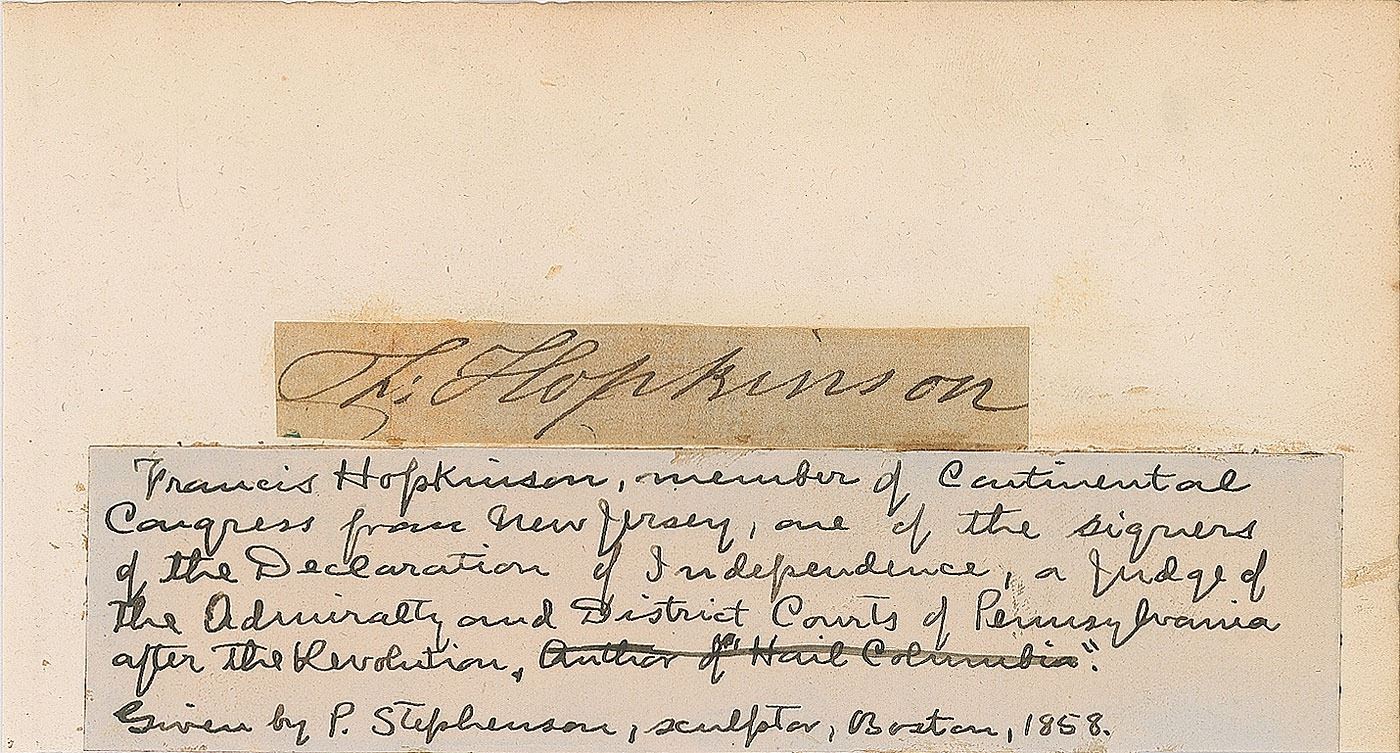 Th: Hopkinson
Francis Hopkinson, member of Continental
Congress from New Jersey, one of the signers
of the Declaration of Independence, a Judge of
the Admiralty and District Courts of Pennsylvania
after the Revolution, Author of "Hail Columbia".
Given by P. Stephenson, sculptor, Boston, 1858.